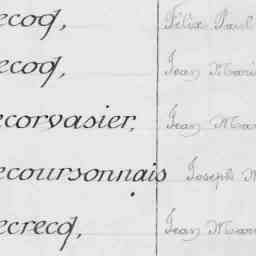 ecoq, Félix Paul
ecoq, Jean Mari
ecorvasier, Jean Mar
ecoursonnais Joseph M
ecrecq, Jean Mari